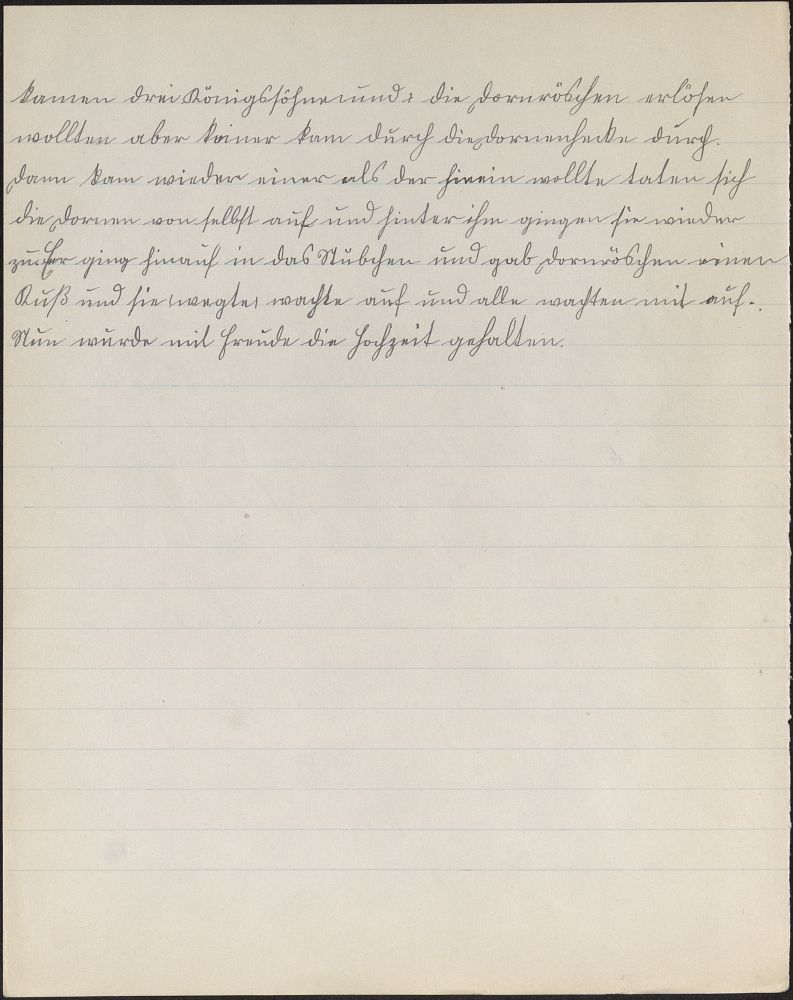 kamen drei Königssöhne und die Dornröschen erlösen
wollten aber keiner kam durch die Dornenhecke durch.
Dann kam wieder einer als der hinein wollte taten sich
die Dornen von selbst auf und hinter ihm gingen sie wieder
zu. Er ging hinauf in das Stübchen und gab Dornröschen einen
Kuß und sie (wegte) wachte auf und alle wachten mit auf.
Nun wurde mit Freude die Hochzeit gehalten.